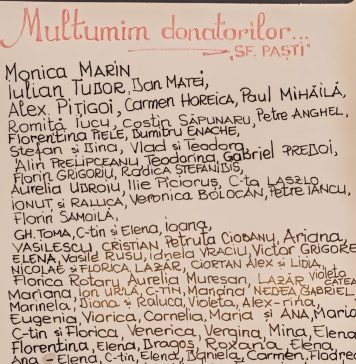 Multumim donatorilor...
"SF. PAȘTI"
Monica MARIN,
Iulian TUDOR, Dan MATEI,
Alex PIȚIGOI, Carmen HOREICA, Paul MIHĂILĂ,
Romiță Iucu, Costin SĂPUNARU, Petre ANGHEL,
Florentina PIELE, Dumitru ENACHE,
Ștefan și Dina, Vlad și Teodora,
Alin PRELIPCEANU, Teodorina, Gabriel PREDOI,
Florin GRIGORIU, Rodica ȘTEFANIDIS,
Aurelia UDROIU, Ilie Piciorus, C-ta LASZLO,
IONUȚ și RALUCA, Veronica BOLOCAN, Petre IANCU,
Florin SAMOILĂ,
GH. TOMA, C-tin și Elena, Ioana,
VASILESCU, CRISTIAN, Petruța CIOBANU, Ariana,
ELENA, Vasile RUSU, Idnela VRACIU, Victor GRIGORE
NICOLAE și FLORICA, LAZĂR, CIORTAN Alex și LIDIA,
Florica Rotaru, Aurelia Mureșan, LAZĂR Violeta
Mariana, Ion URLĂ, C-TIN, Marina, NEDEA GABRIEL
Marinela, Diona și Raluca, Violeta, Alex-rina,
Eugenia, Viorica, Cornelia, Maria și ANA, Maria
C-tin și Florica, Venerica, Vergina, Mina, Elena
Florentina, Elena, Dragoș, Roxana, Elena
Ana - Elena, C-tin, Elena, Daniela, Carmen, Flodrea